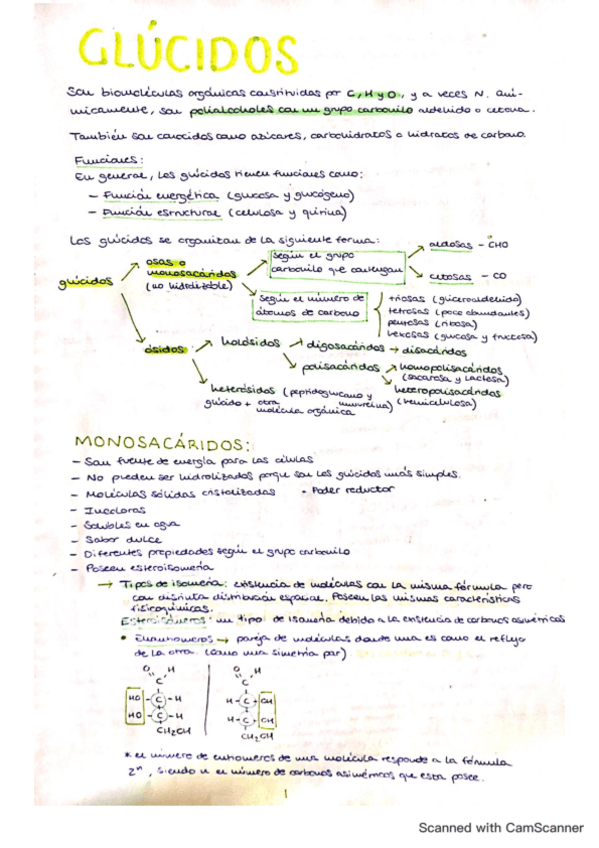 GLÚCIDOS
Son biomoléculas orgánicas constituidas por C, H y O, y a veces N. Quí-
micamente, son polialcoholes con un grupo carbonilo aldehído o cetona.
También son conocidos como azúcares, carbohidratos o hidratos de carbono.
Funciones:
En general, los glúcidos tienen funciones como:
- Función energética (glucosa y glucógeno)
- Función estructural (celulosa y quitina)
Los glúcidos se organizan de la siguiente forma:
glúcidos
osas o
monosacáridos
(no hidrolizable)
Según el grupo
carbonilo que contengan
aldosas - CHO
cetosas - CO
Según el número de
átomos de carbono
triosas (gliceraldehído)
tetrosas (poco abundantes)
pentosas (ribosa)
hexosas (glucosa y fructosa)
ósidos
holósidos → oligosacáridos → disacáridos
polisacáridos → homopolisacáridos
(sacarosa y lactosa)
heteropolisacáridos
(hemicelulosa)
heterósidos (peptidoglucano y
mureína)
glúcido + otra
molécula orgánica
MONOSACÁRIDOS:
- Son fuente de energía para las células
- No pueden ser hidrolizados porque son los glúcidos más simples.
- Moléculas sólidas cristalizadas • Poder reductor
- Incoloras
- Solubles en agua
- Sabor dulce
- Diferentes propiedades según el grupo carbonilo
- Poseen estereoisomería
→ Tipos de isomería: existencia de moléculas con la misma fórmula pero
con distinta distribución espacial. Poseen las mismas características
fisicoquímicas.
Estereoisómeros: un tipo de isomería debido a la existencia de carbonos asimétricos
• Enantiómeros → pareja de moléculas donde una es como el reflejo
de la otra. (como una simetría par).
O H
C
HO - C - H
HO - C - H
CH₂OH
O H
C
H - C - OH
H - C - OH
CH₂OH
* el número de de una molécula responde a la fórmula
2ⁿ, siendo n el número de carbonos asimétricos que esta posee.
1
Scanned with CamScanner